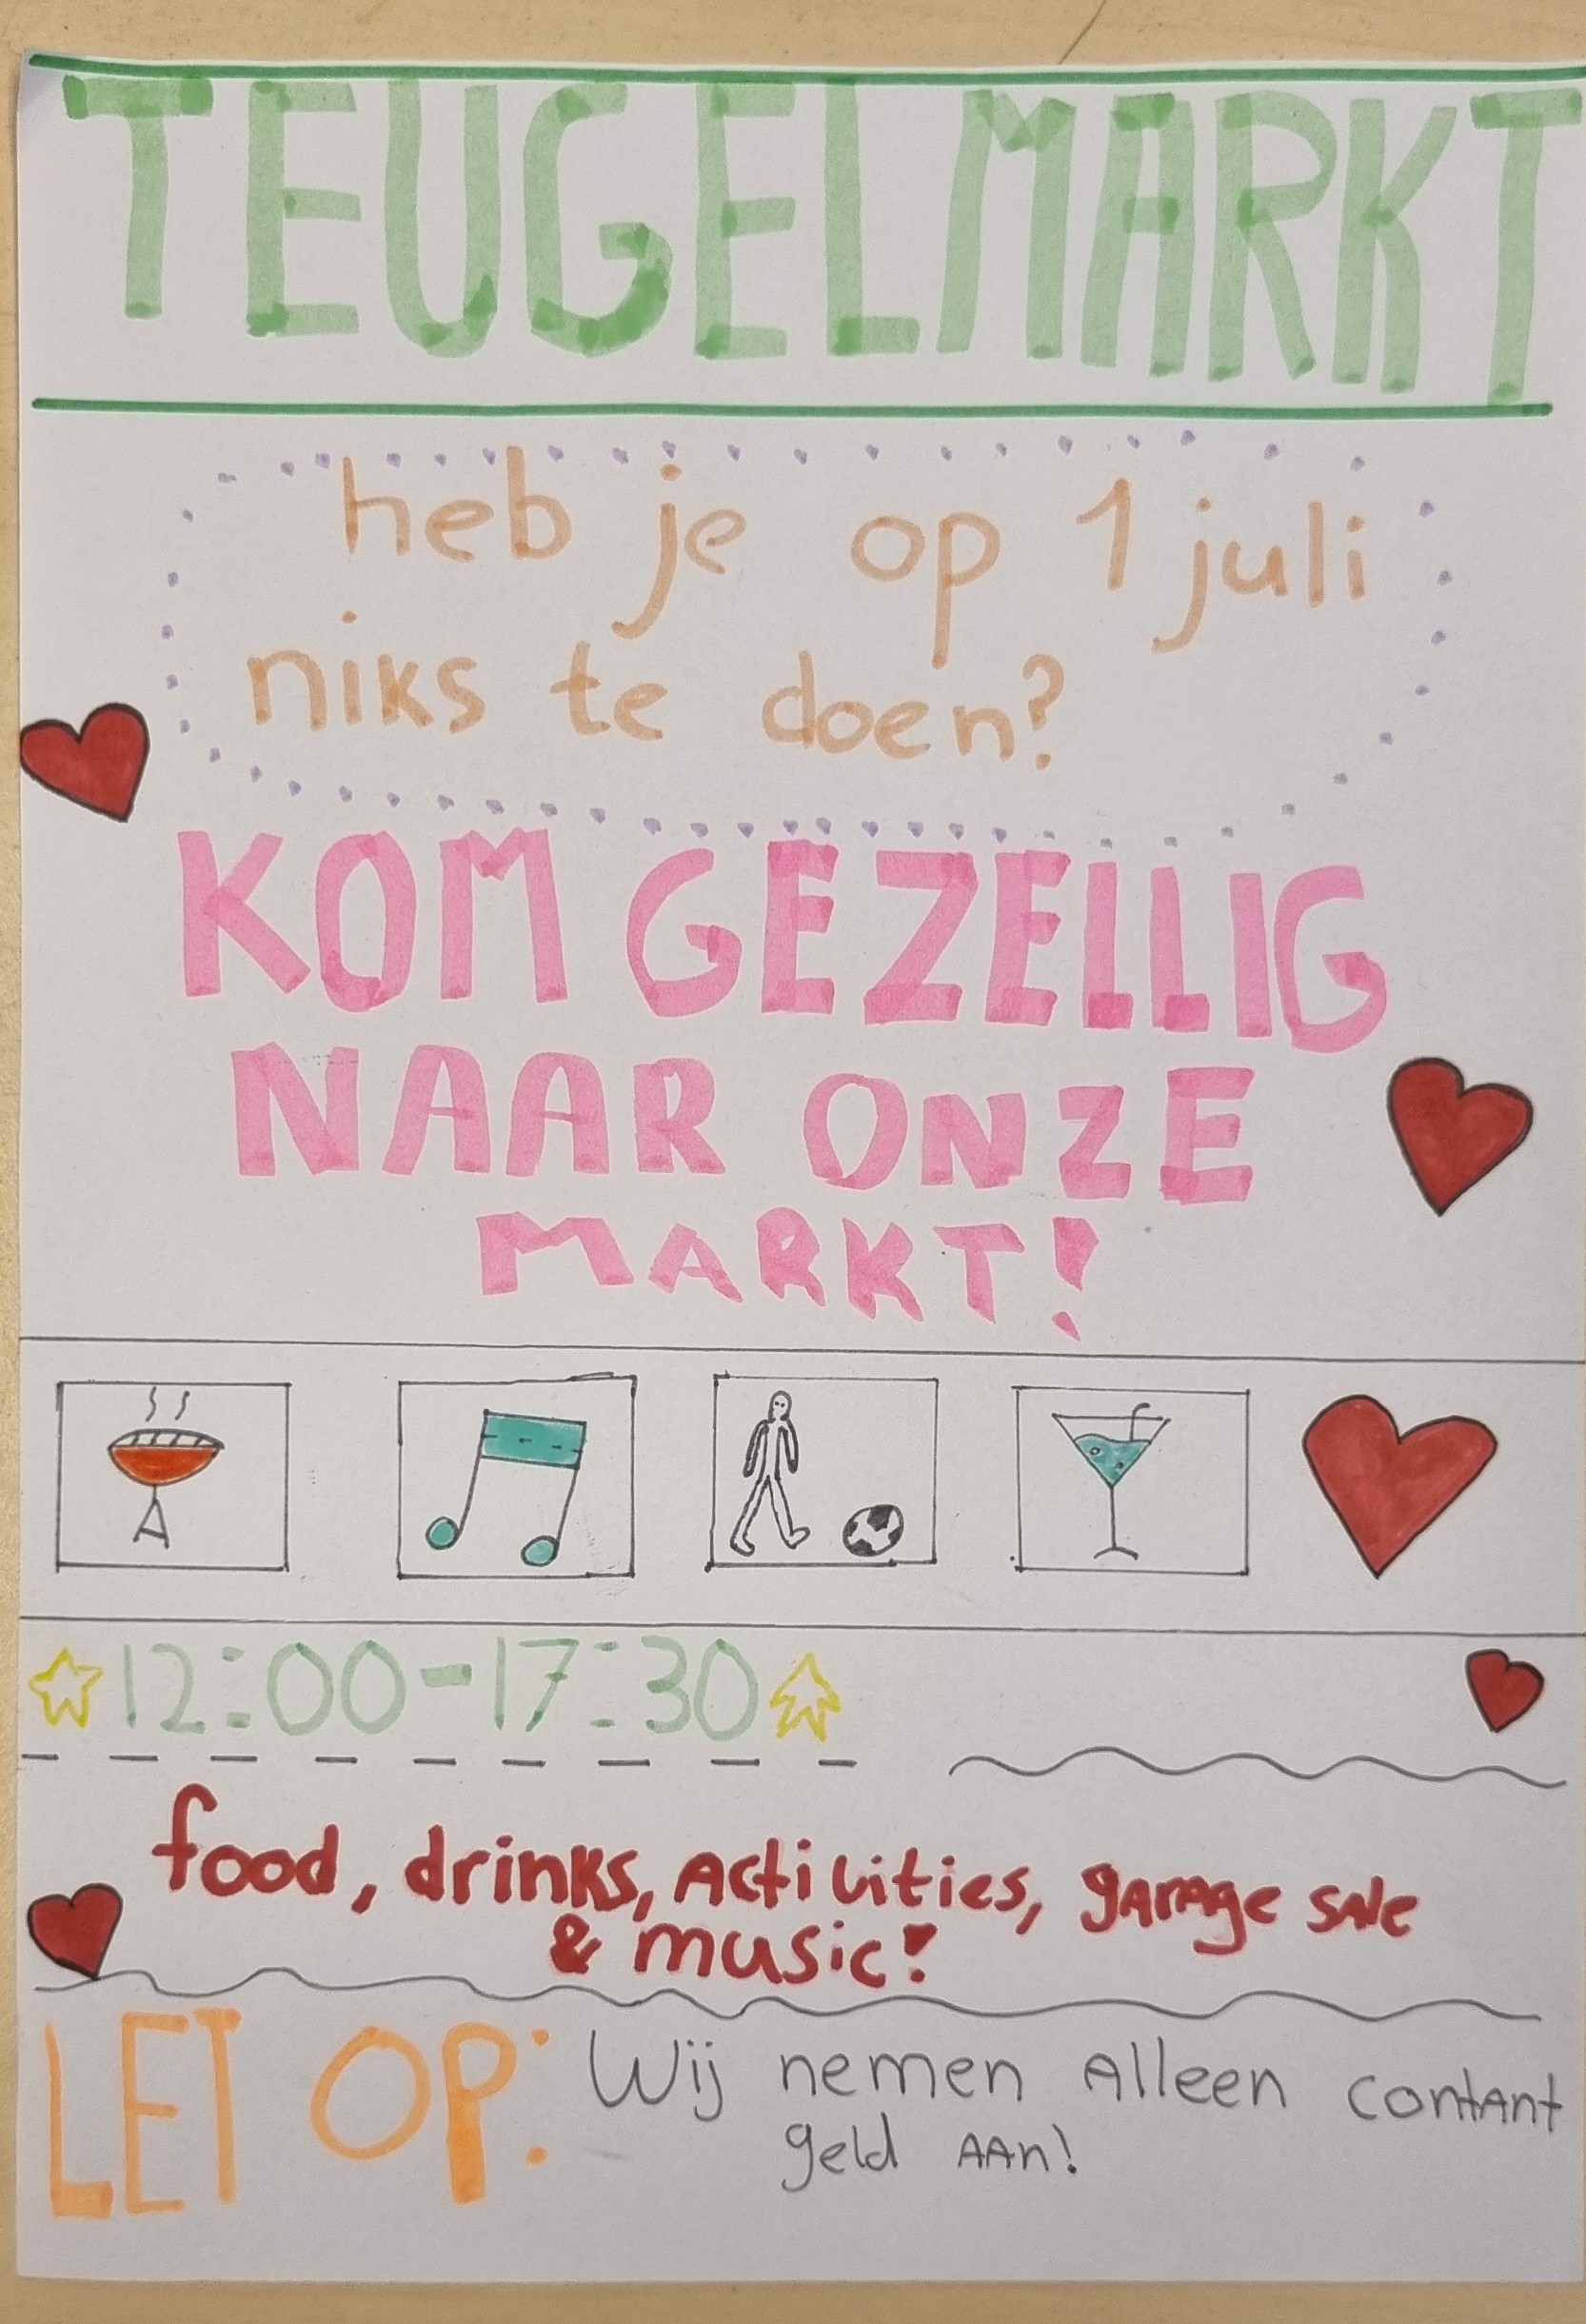 TEUGELMARKT
heb je op 1 juli
niks te doen?
KOM GEZELLIG
NAAR ONZE
MARKT!
12:00-17:30
food, drinks, Activities, garage sale
& music!
LET OP: Wij nemen Alleen contant
geld AAn!